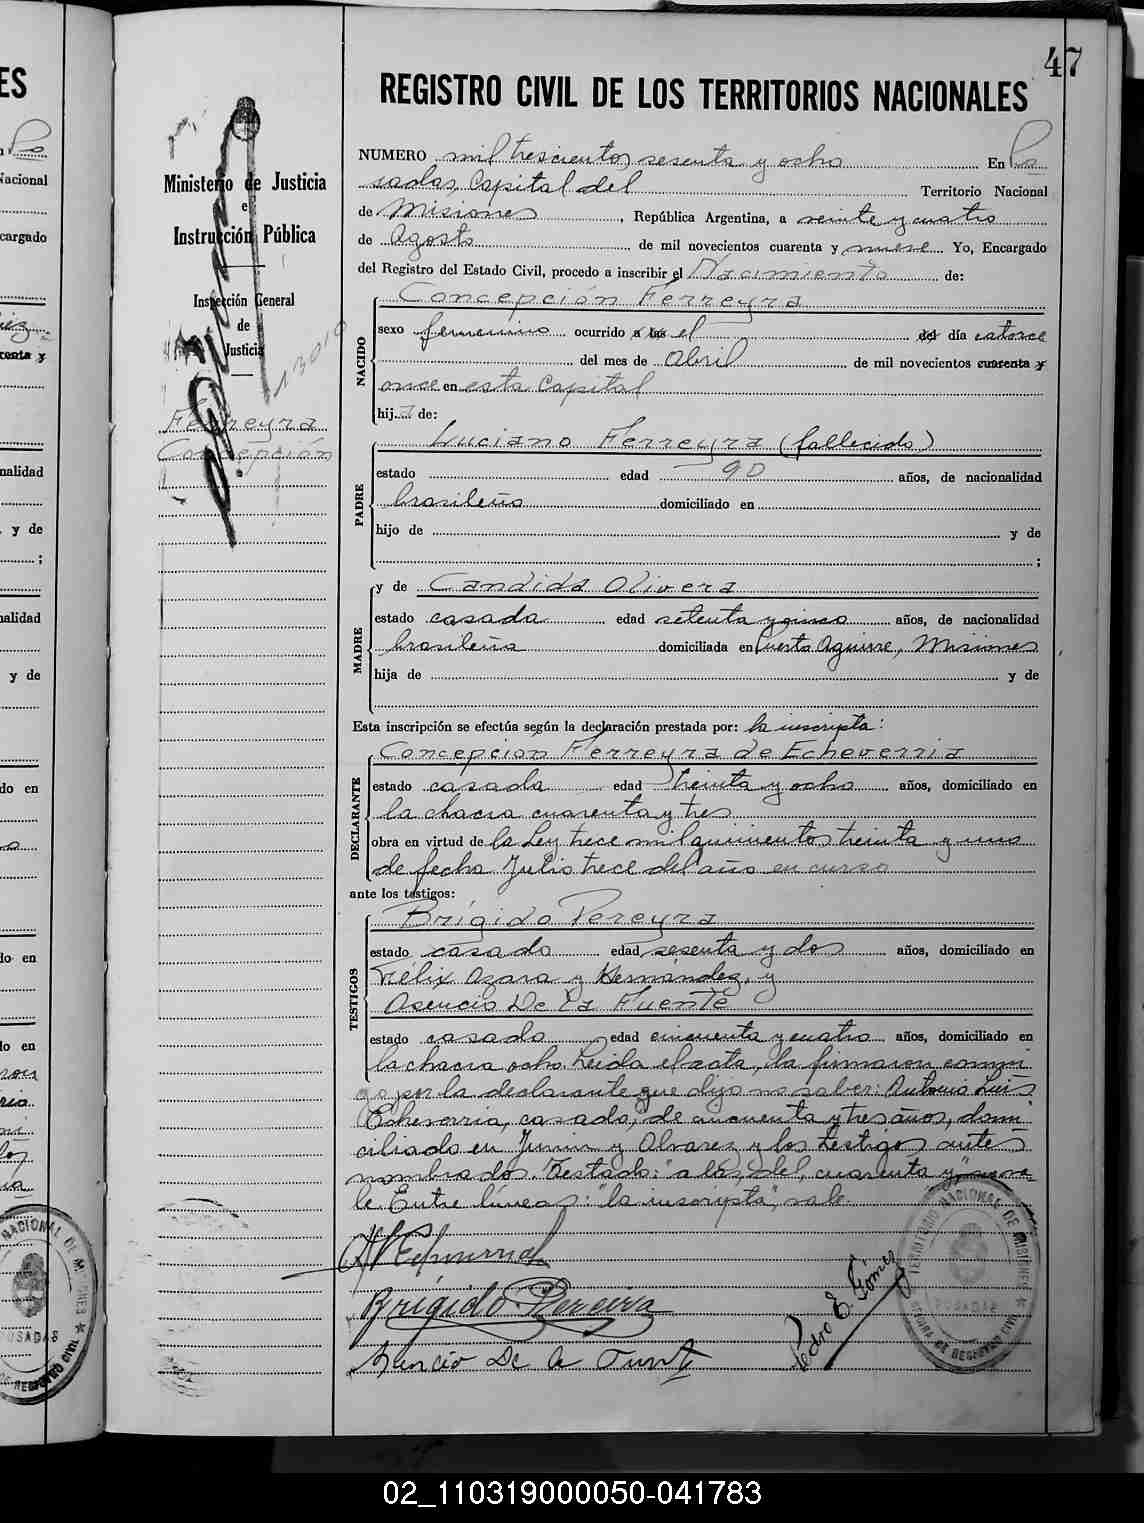 47
REGISTRO CIVIL DE LOS TERRITORIOS NACIONALES
Ministerio de Justicia
e
Instrucción Pública
Inspección General
de
Justicia
Ferreyra
Concepción
NUMERO mil trescientos sesenta y ocho En Po
sadas, Capital del Territorio Nacional
de Misiones, República Argentina, a veinte y cuatro
de Agosto de mil novecientos cuarenta y nueve Yo, Encargado
del Registro del Estado Civil, procedo a inscribir el Nacimiento de:
NACIDO
Concepción Ferreyra
sexo femenino ocurrido a las el del día catorce
del mes de Abril de mil novecientos cuarenta y
once en esta Capital
hija de:
PADRE
Luciano Ferreyra (fallecido)
estado edad 90 años, de nacionalidad
brasileña domiciliado en
hijo de y de
;
MADRE
y de Candida Olivera
estado casada edad setenta y cinco años, de nacionalidad
brasileña domiciliada en Puerto Aguirre, Misiones
hija de y de
Esta inscripción se efectúa según la declaración prestada por: la inscripta:
DECLARANTE
Concepcion Ferreyra de Echeverria
estado casada edad treinta y ocho años, domiciliado en
la chacra cuarenta y tres
obra en virtud de la Ley trece mil quinientos treinta y uno
de fecha Julio trece del año en curso
ante los testigos:
TESTIGOS
Brígido Pereyra
estado casado edad sesenta y dos años, domiciliado en
Félix Azara y Hernández, y
Asencio De La Fuente
estado casado edad cincuenta y cuatro años, domiciliado en
la chacra ocho. Leida el acta, la firmaron conmi
go por la declarante que dijo no saber: Antonio Luis
Echeverria, casado, de cincuenta y tres años, domi
ciliado en Junin y Alvarez y los testigos antes
nombrados. Testado: "a las, del, cuarenta y" no va
le Entre líneas: "la inscripta", vale.
Brígido Pereira
Asencio De la Fuente
Pedro E. Gómez
TERRITORIO NACIONAL DE MISIONES
POSADAS
02_110319000050-041783